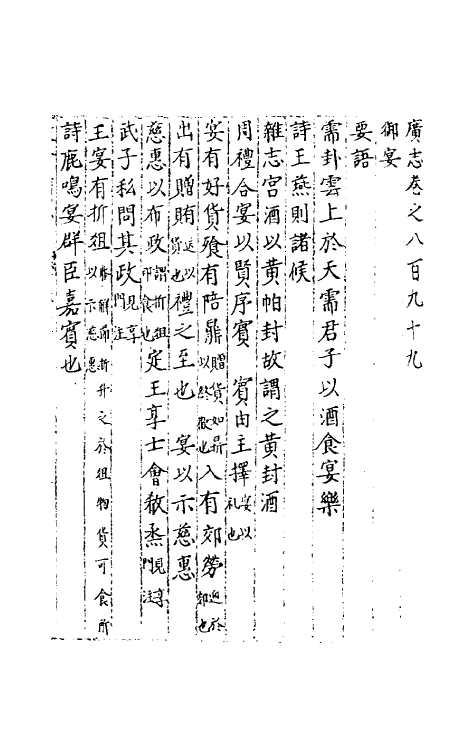 廣志卷之八百九十九
御宴
要語
需卦雲上於天需君子以酒食宴樂
詩王燕則諸侯
雜志宮酒以黄帕封故謂之黄封酒
周禮合宴以賢序賓 賓由主擇宴以禮也
宴有好貨飱有陪鼎贈貨如鼎以終歡也入有郊勞迎於郊也
出有贈賄送以貨也禮之至也 宴以示慈惠
慈惠以布政謂折俎即食也定王享士會殽烝見享門注
武子私問其政見享門注
王宴有折俎將解節折升之於俎物貨可食所以示慈惠
詩鹿鳴宴群臣嘉賓也